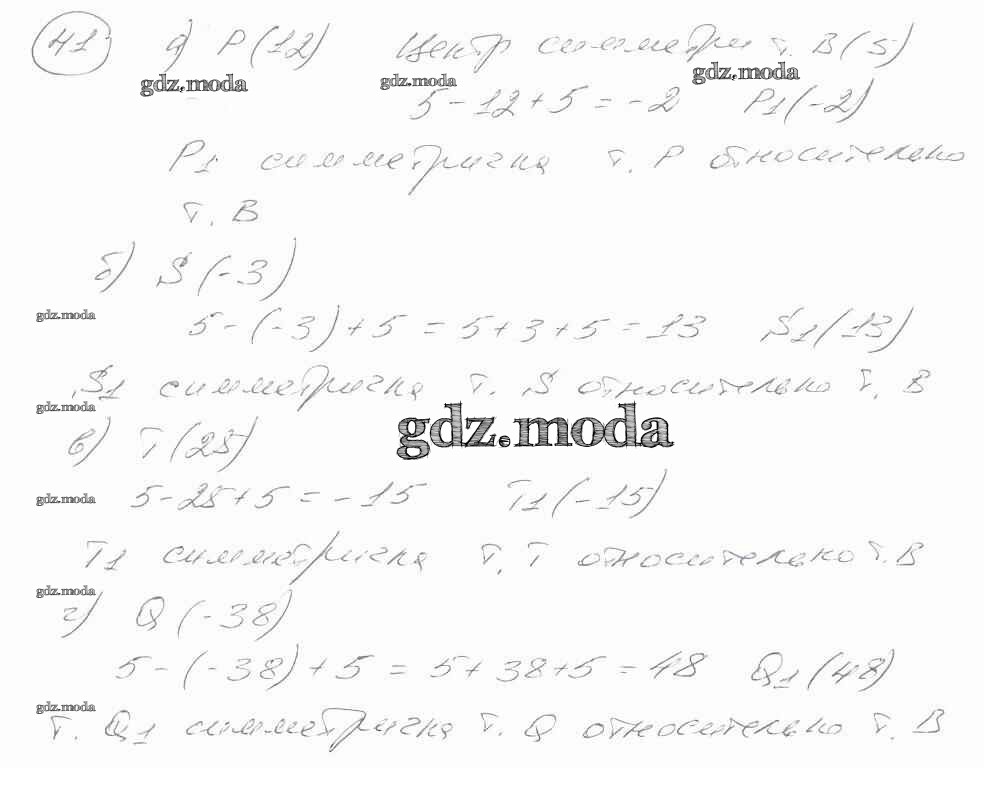 41 а) P(12) Центр симметри т. B(5)
gdz.moda gdz.moda gdz.moda
5-12+5=-2 P1(-2)
P1 симметрична т. P относительно
т. B
б) S(-3)
gdz.moda
5-(-3)+5=5+3+5=13 S1(13)
S1 симметрична т. S относительно т. B
gdz.moda
gdz.moda
в) T(25)
gdz.moda
5-25+5=-15 T1(-15)
T1 симметрична т. T относительно т. B
gdz.moda
г) Q(-38)
5-(-38)+5=5+38+5=48 Q1(48)
gdz.moda
т. Q1 симметрична т. Q относительно т. B